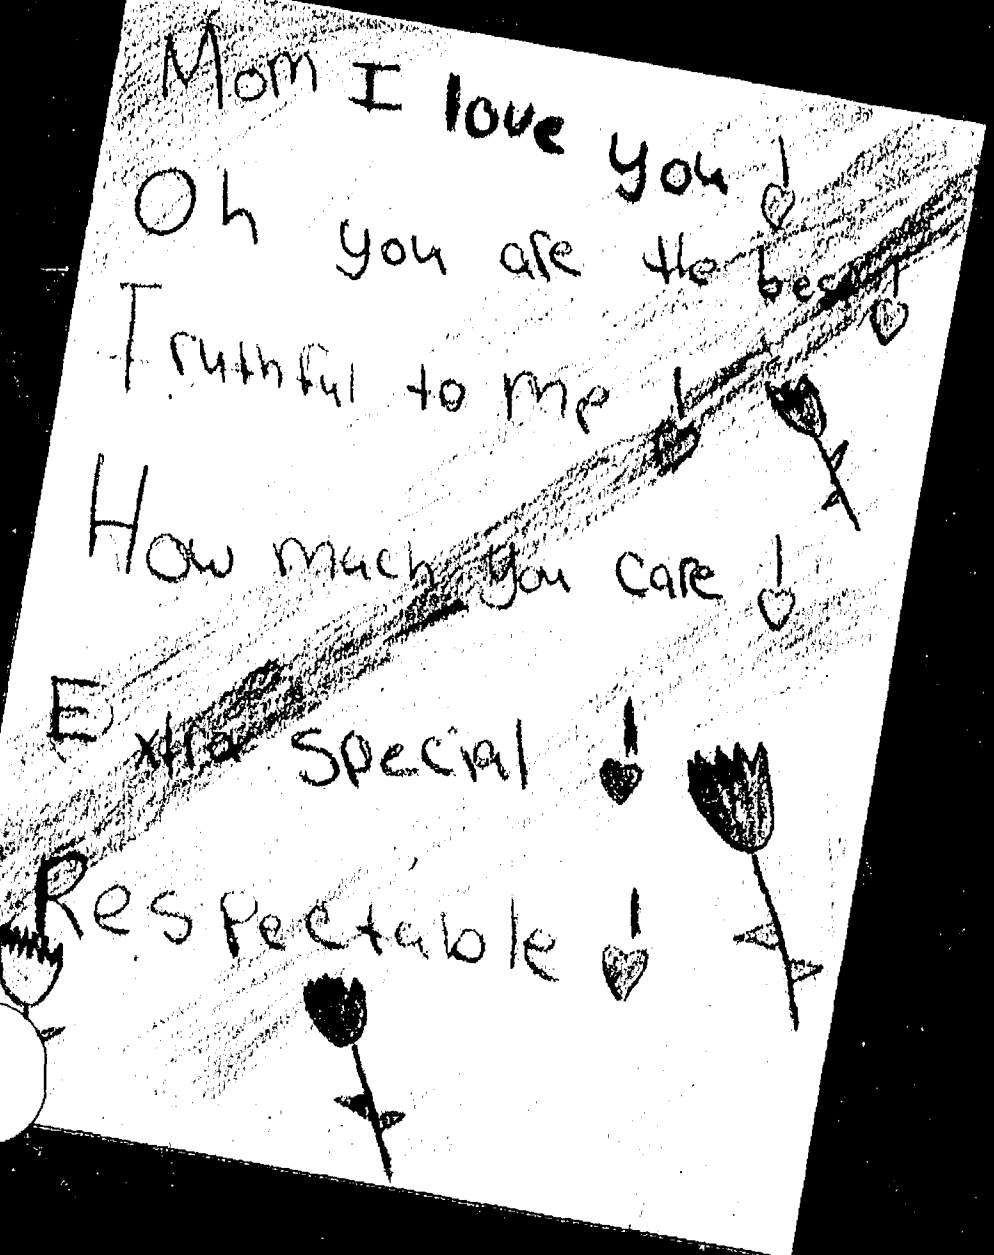 Mom I love you!
Oh you are the best!
Truthful to me!
How much you care!
Extra special!
Respectable!